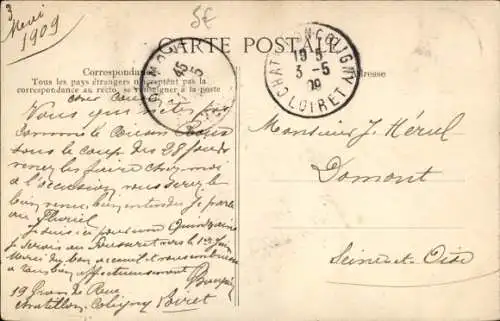 3
Mai
1909
5€
CARTE POSTALE
Correspondance
Tous les pays étrangers n'acceptent pas la
correspondance au recto, se renseigner à la poste
Adresse
CHATILLON COLIGNY
19 5
3 -5
09
LOIRET
45
cher Cousin
Vous qui n'êtes pas
comme le Cousin
sous le coup des 28 jours
venez les faire chez moi
à l'occasion vous serez le
bien venu, bien entendu je parle
au Pluriel
Je suis ici pour une Quinzaine
Je serais au vers le 1er Juin
Merci du bon accueil
affectueusement
19 Grande Rue
Chatillon-Coligny Loiret
Monsieur J. Hériel
Domont
Seine-et-Oise